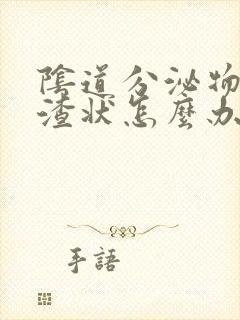 陰道分泌物
渣狀怎麼办
手語